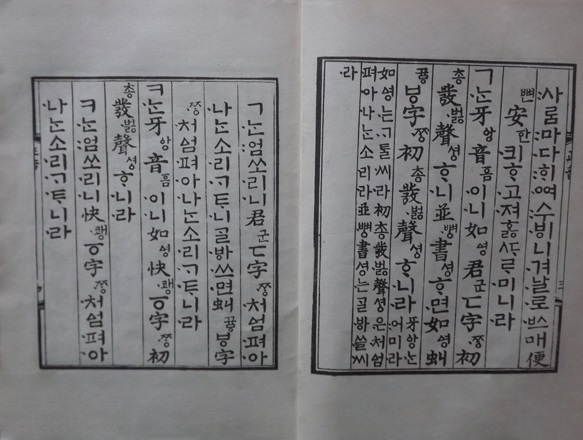 사ᄅᆞᆷ마다ᄒᆡᅇᅧ수ᄫᅵ니겨날로ᄡᅳ매便
뼌安한킈ᄒᆞ고져홇ᄯᆞᄅᆞ미니라
ㄱᄂᆞᆫ牙앙音ᅙᅳᆷ이니如ᅀᅧᆼ君군ㄷ字ᄍᆞᆼ初
총發벓聲셩ᄒᆞ니並뼝書셩ᄒᆞ면如ᅀᅧᆼ虯
뀽ㅸ字ᄍᆞᆼ初총發벓聲셩ᄒᆞ니라牙앙ᄂᆞᆫ
어미라
如ᅀᅧᆼ는ᄀᆞᄐᆞᆯ씨라初총發벓聲셩은처ᅀᅥᆷ
펴아나ᄂᆞᆫ소리라並뼝書셩는ᄀᆞᆯᄫᅡ쓸씨
라
ㄱᄂᆞᆫ엄쏘리니君군ㄷ字ᄍᆞᆼ처ᅀᅥᆷ펴아
나ᄂᆞᆫ소리ᄀᆞᄐᆞ니ᄀᆞᆯᄫᅡ쓰면虯뀽ㅸ字
ᄍᆞᆼ처ᅀᅥᆷ펴아나ᄂᆞᆫ소리ᄀᆞᄐᆞ니라
ㅋᄂᆞᆫ牙앙音ᅙᅳᆷ이니如ᅀᅧᆼ快쾡ㆆ字ᄍᆞᆼ初
총發벓聲셩ᄒᆞ니라
ㅋᄂᆞᆫ엄쏘리니快쾡ㆆ字ᄍᆞᆼ처ᅀᅥᆷ펴아
나ᄂᆞᆫ소리ᄀᆞᄐᆞ니라